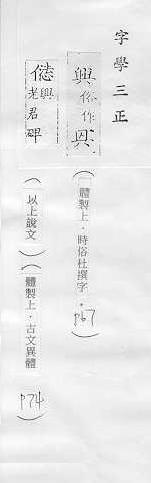 字學三正
興俗作（體製上．時俗杜撰字．p67）
興老君碑（以上說文）（體製上．古文異體p74）